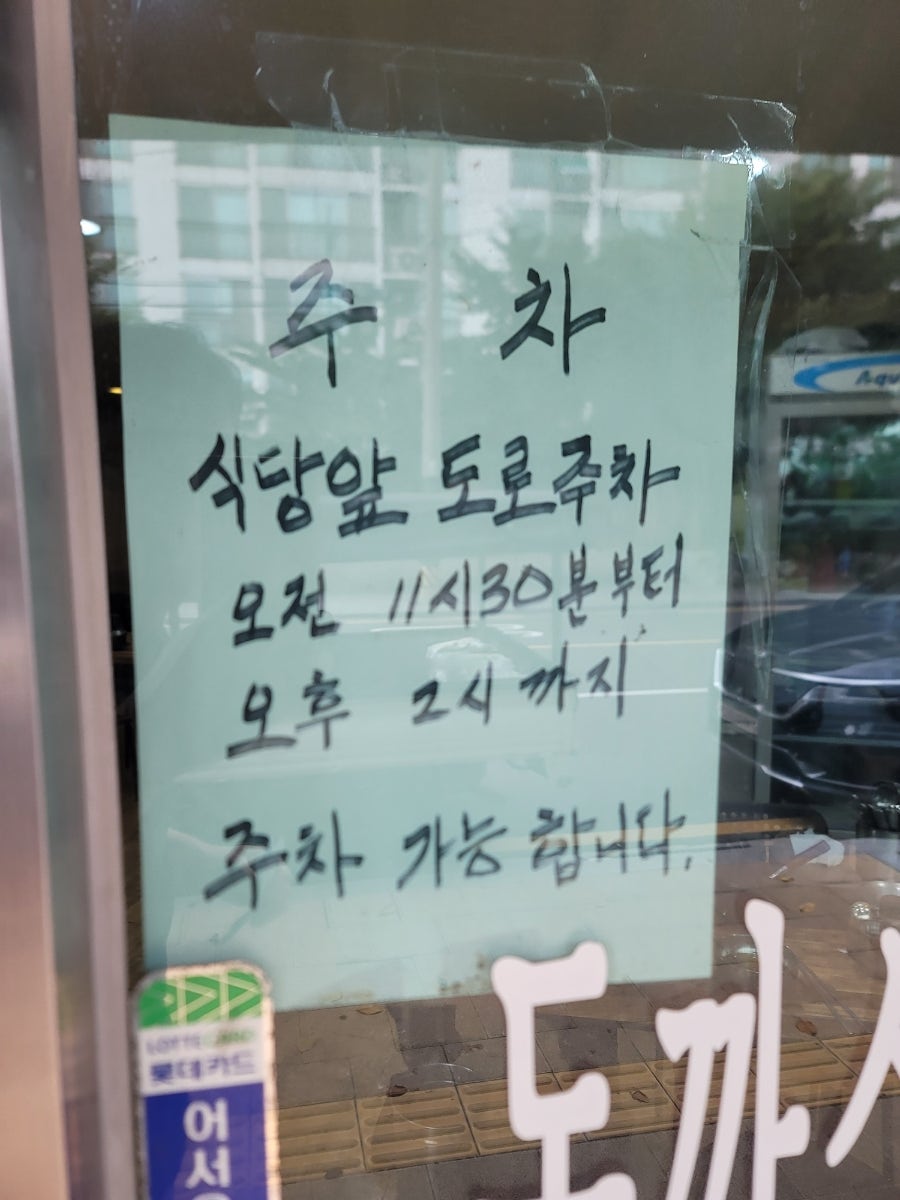 주 차
식당앞 도로주차
오전 11시30분부터
오후 2시 까지
주차 가능 합니다.
Aqu
LOTTE CARD
롯데카드
어서
돈까